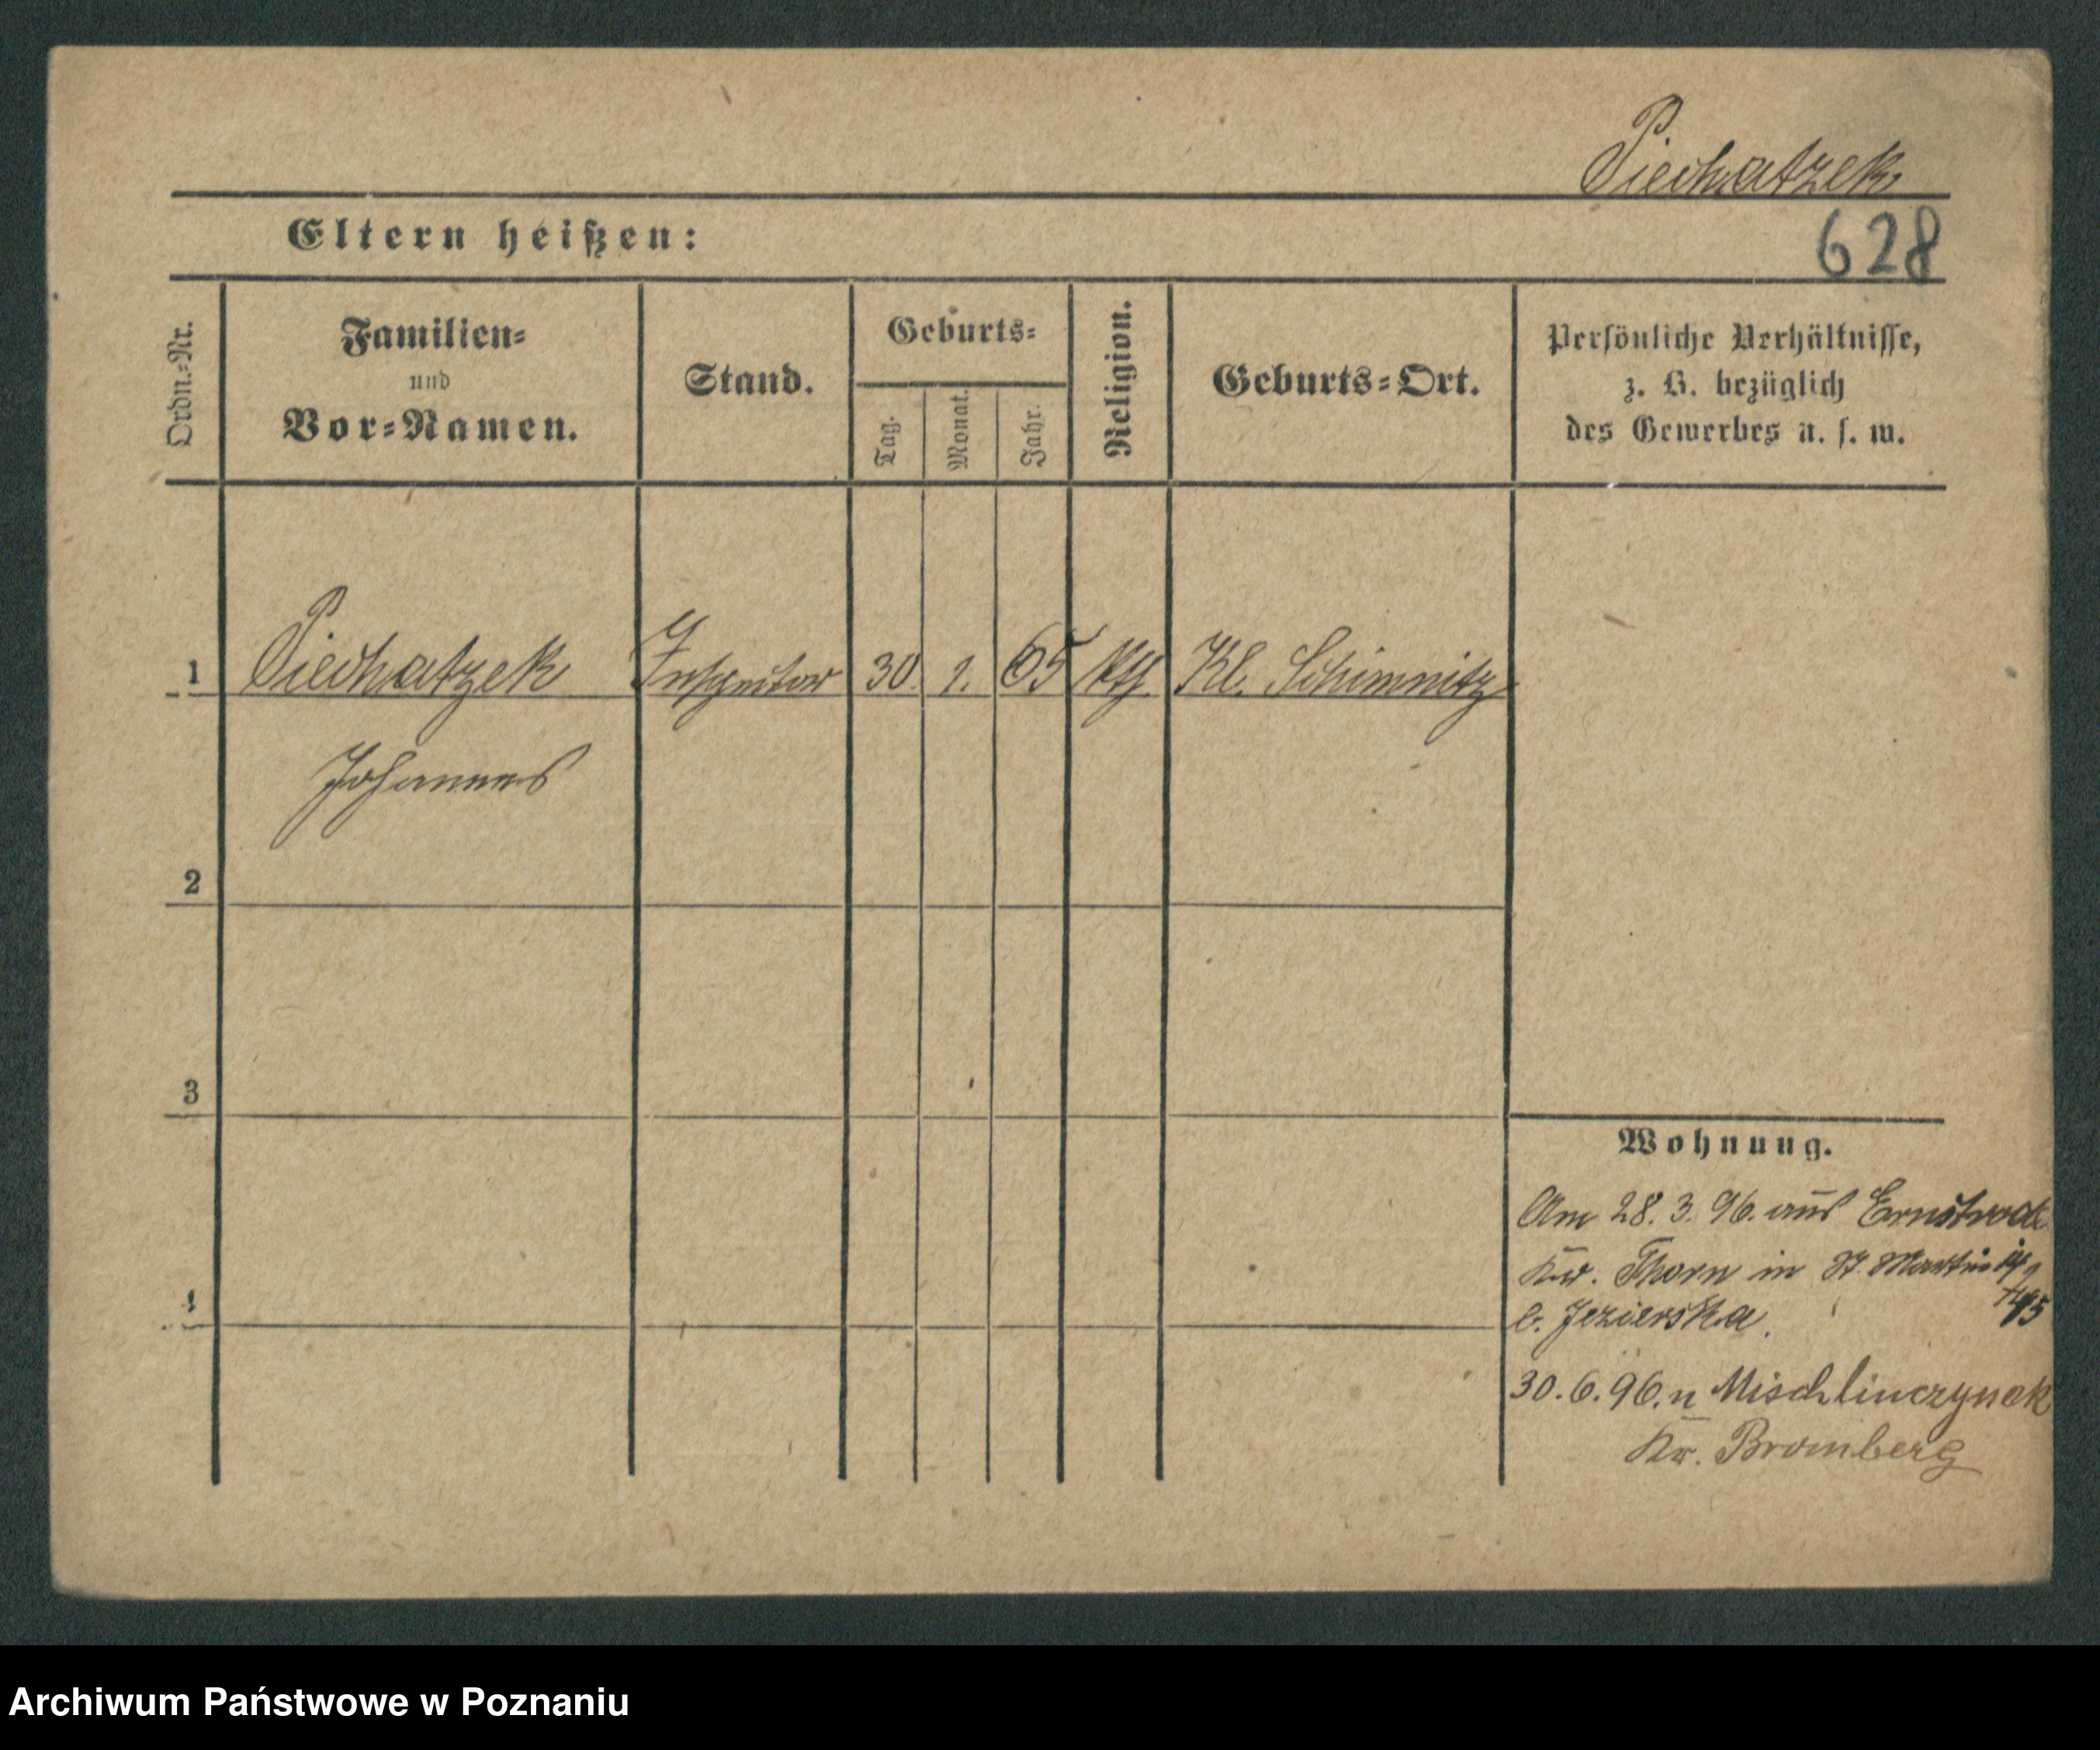 Piechatzek
Eltern heißen:
628
Ordn.-Nr.
Familien-
und
Vor-Namen.
Stand.
Geburts-
Tag.
Monat.
Jahr.
Religion.
Geburts-Ort.
Persönliche Verhältnisse,
z. B. bezüglich
des Gewerbes u. s. w.
1 Piechatzek Inspector 30. 1. 65 kth. Kl. Schimnitz
Johannes
2
3
4
Wohnung.
Am 28. 3. 96. aus Ernstrode
Kr. Thorn in St. Martin
b. Jezierska.
30. 6. 96. n Mischlinczynek
Kr. Bromberg
Archiwum Państwowe w Poznaniu